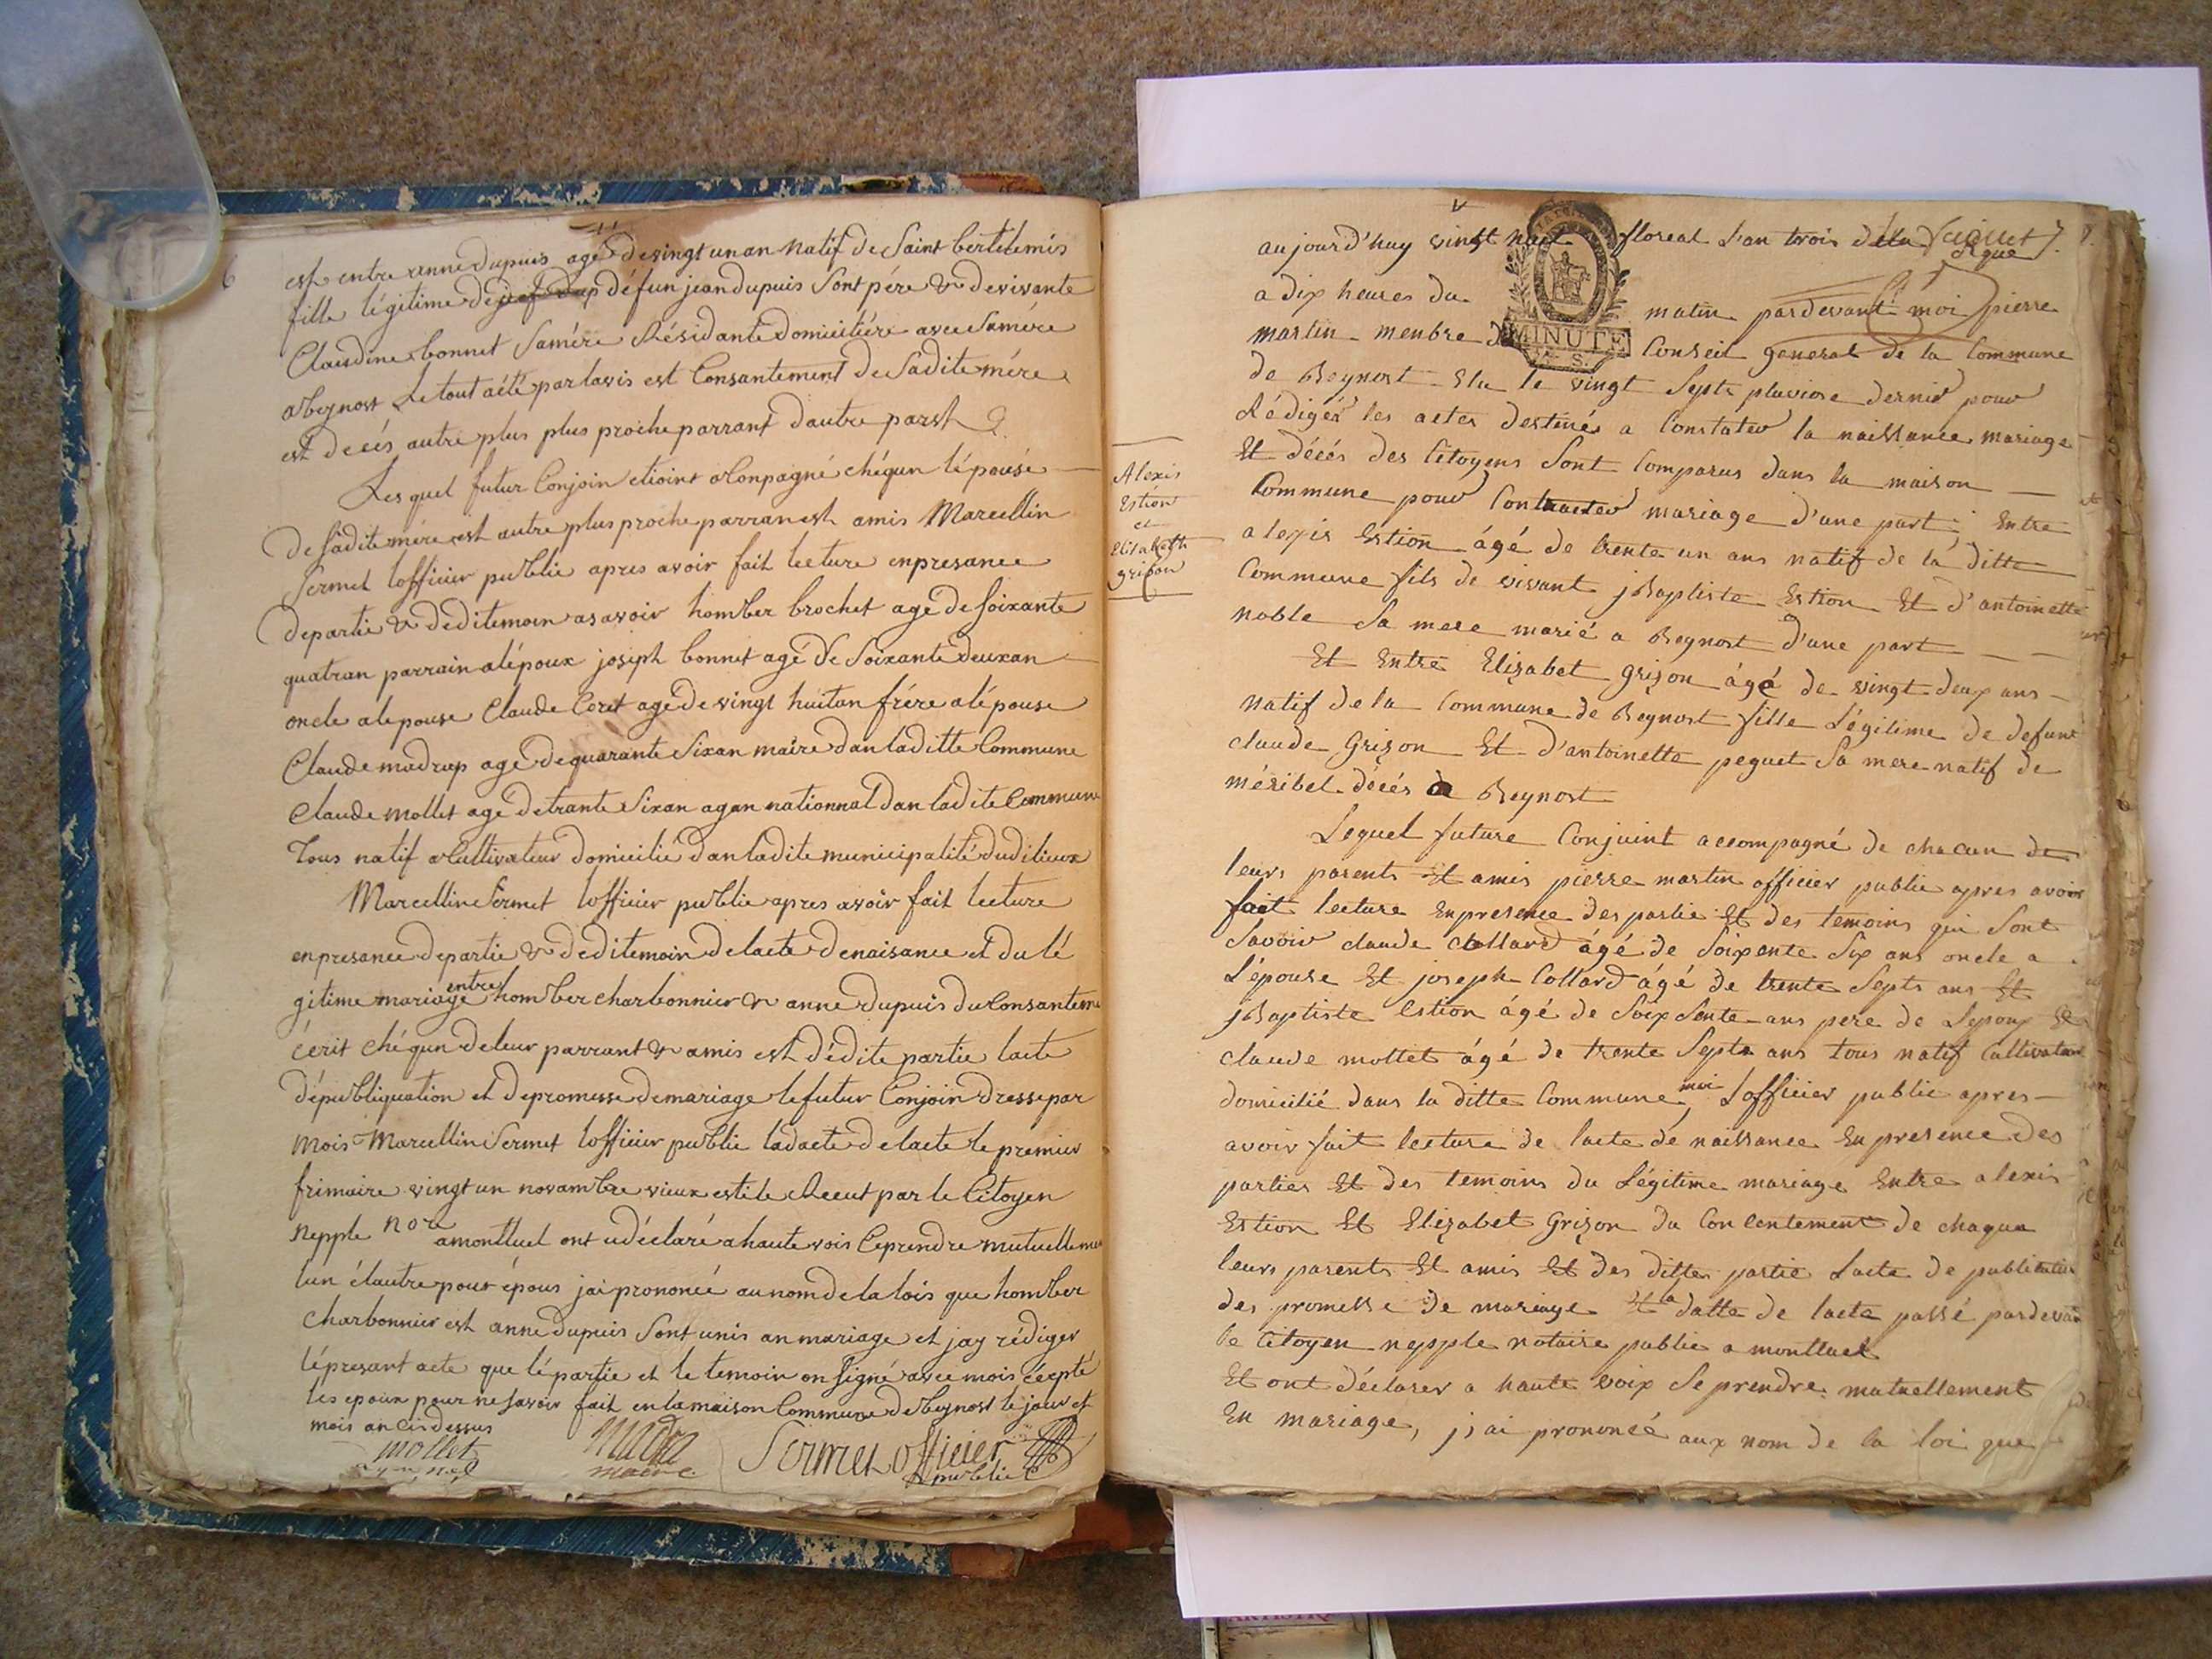 6
est entre anne dupuis agé de vingt un an natif de Saint bertelemis
fille légitime de défun jean dupuis Sont pére & de vivante
Claudine bonnet Samére Résidante domiciliére avec Samére
a beynost Le tout aété par lavis est Consantement de Sadite mére
est decés autre plus plus proche parrant dautre parst
Les quel futur Conjoin etioint aConpagné chéqun lépouse
de Sadite mére est autre plus proche parran est amis Marcellin
Sermet lofficier publie apres avoir fait lecture enpresance
departie & deditemoin asavoir homber brochet agé de soixante
quatran parrain alépoux joseph bonnet agé de Soixante deuxan
oncle alepouse Claude Ceret age de vingt huitan frére alépouse
Claude madrap agé de quarante Sixan maire dan laditte Commune
Claude mollet agé detrante Sixan agan nationnal dan ladite Commune
Tous natif aCultivateur domicilié dan ladite municipalité duditlieux
Marcellin Sermet lofficier publie apres avoir fait lecture
enpresance departie & deditemoin delacte denaisance et du lé
gitime mariage entre homber charbonnier & anne dupuis duConsanteme
écrit chéqun deleur parrant & amis est dédite partie lacte
dépubliquation et depromesse demariage lefutur Conjoin dresse par
mois Marcellin Sermet lofficier publie ladacte delacte le premier
frimaire vingt un novambre vieux estile Receut par le Citoyen
Nepple no^re amontluel ont udéclaré ahaute vois Ceprendre mutuelleme
lun élautre pour épous jai prononcé aunom de la lois que homber
charbonnier est anne dupuis Sont unis an mariage et jay rédiger
lépresant acte que lépartie et le temoin on signé avec mois cécpté
les epoux pour ne savoir fait en la maison Commune de beynost le jour et
mois an cindessus
mollet
maire
Sermet officier
publie
7.
aujourd'huy vingt huit floreal L'an trois
a dix heures du matin pardevant moi pierre
martin menbre du Conseil general de la Commune
MINUTE
de Beynost Elu le vingt Septs pluviose dernié pour
Rédigér les actes destinés a Constater la naissance mariage
Et décés des Citoyens Sont Comparus dans la maison
Commune pour Contracter mariage d'une part; Entre
alexis Estion âgé de trente un ans natif de la ditte
Commune fils de vivant jBaptiste Estion Et d'antoinette
noble Sa mere marié a Beynost d'une part
Alexis
Estion
et
Elisabeth
grison
Et Entre Elizabet Grizon âgé de vingt deux ans
natif de la Commune de Beynost fille Légitime de defunt
claude Grizon Et d'antoinette peguet Sa mere natif de
méribel décés a Beynost
Lequel future Conjoint accompagné de chacun de
leurs parents Et amis pierre martin officier publie apres avoir
fait lecture En presence des partie Et des temoins qui Sont
Savoir claude Collard âgé de Soixente Six ans oncle a
L'épouse Et joseph Collard âgé de trente Septs ans Et
jBaptiste Estion âgé de Soixsente ans pere de Lepoux Et
claude mollet âgé de trente Septs ans tous natif Cultivateur
domicilié dans la ditte Commune, moi Lofficier public apres
avoir fait lecture de lacte de naissance En presence des
parties Et des temoins du Légitime mariage Entre alexis
Estion Et Elizabet Grizon du Concentement de chaque
leurs parents Et amis Et des dittes partie Lacte de publication
des promesse de mariage la datte de lacte passé pardevan
le Citoyen nepple notaire publie a montluel
Et ont déclarer a haute voix Se prendre mutuellement
En mariage, j'ai prononcé aux nom de la loi que